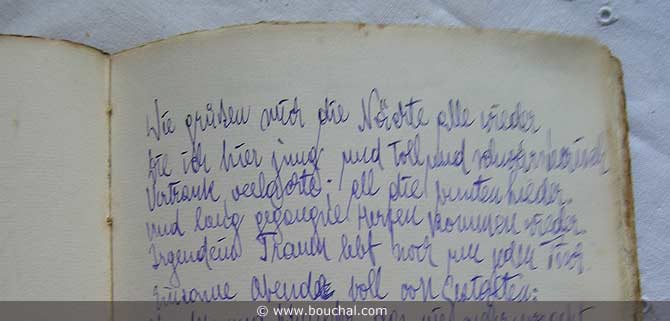 Wie grüßen mich die Nächte alle wieder
Die ich hier jung und toll und
Vertrank verlachte. all die bunten Lieder
und lang gegangne Herzen kommen wieder
Irgendein Traum lebt noch um jeden Tisch
Einsame Abende voll von Gestalten:
© www.bouchal.com